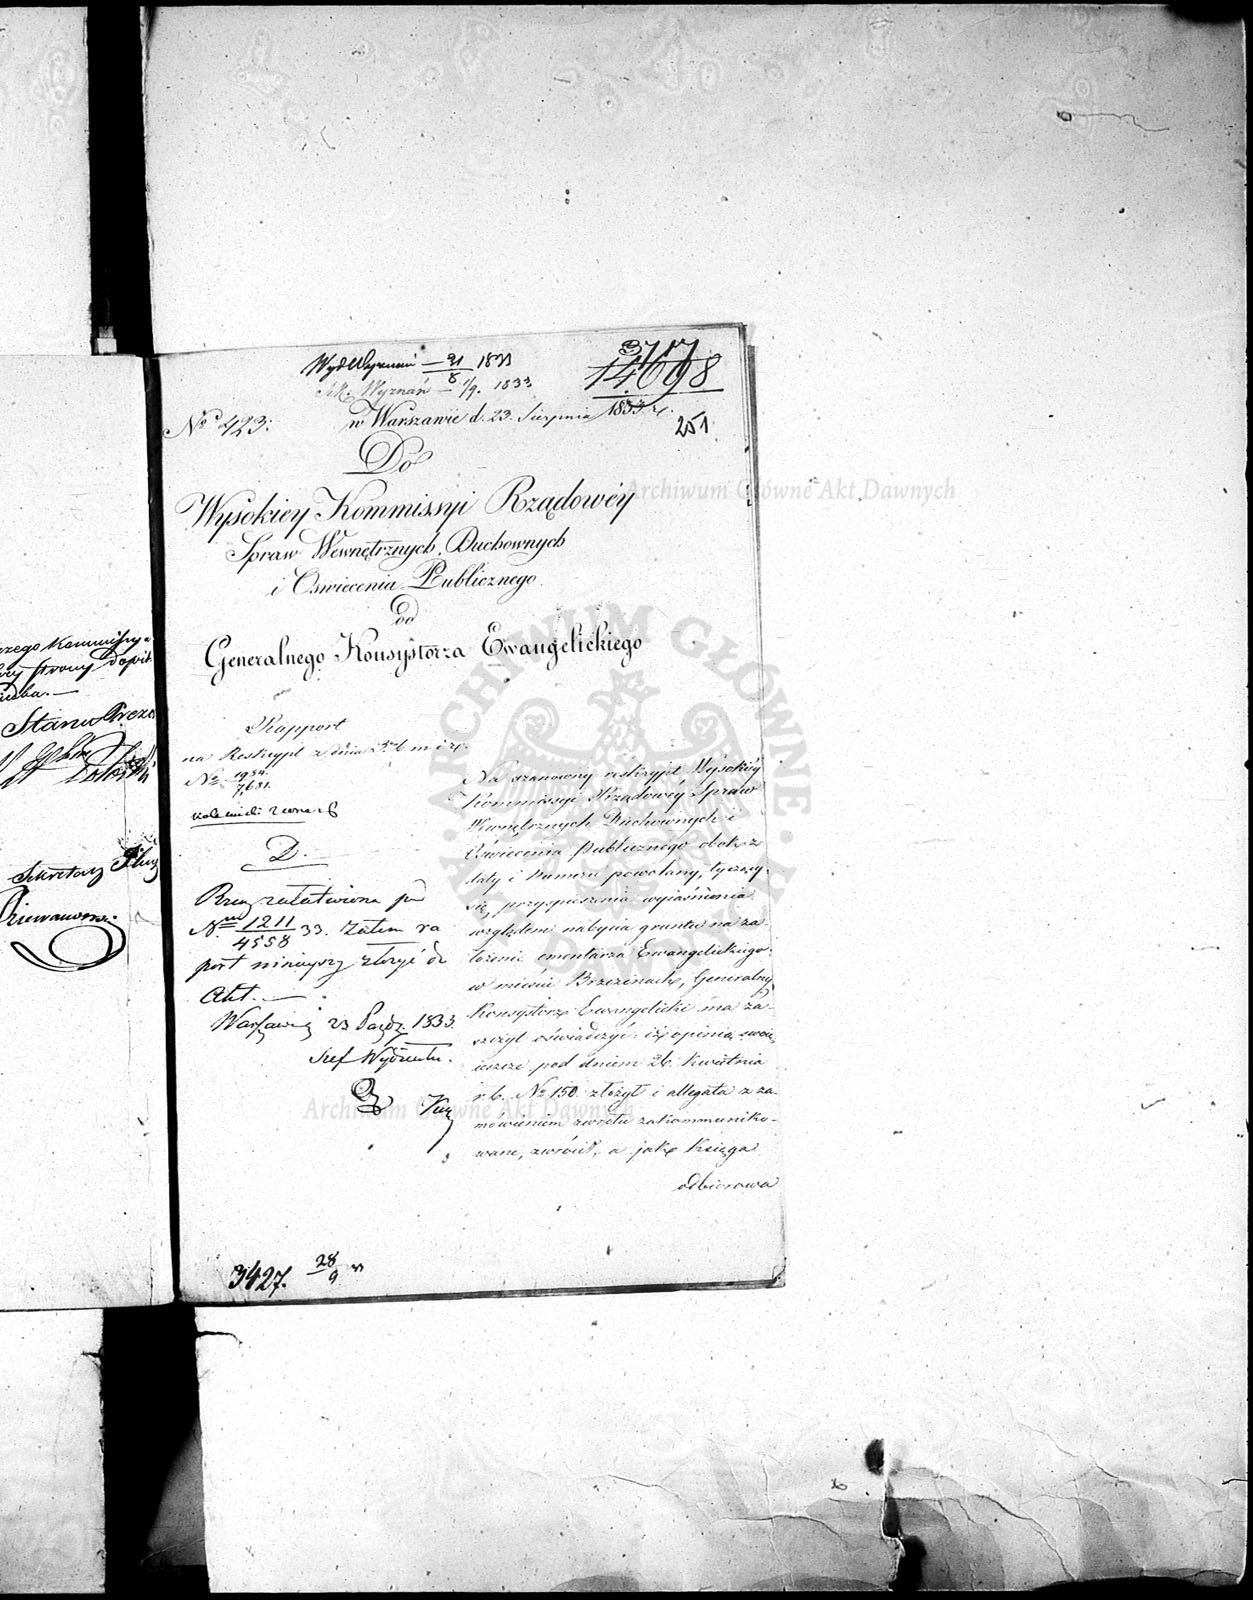 Wyd Wyznań 31/8 1833
Wyznań 1/9. 1833
3717
14698
No 423.
w Warszawie d. 23. Sierpnia 1833 r.
251
Do
Wysokiey Kommissyi Rządowéy
Spraw Wewnętrznych, Duchownych
i Oswiecenia Publicznego
od
Generalnego Konsystorza Ewangelickiego
Rapport
na Reskrypt z dnia m. i r.
No 1954.
7,681.
D.
No 1211/4558 33. Zatem ra
port ninieyszy złożyć do
Akt.
Warszawa 23 Paźdz. 1833.
Szef Wydziału.
Na szanowny reskrypt Wysokiéy
Kommissyi Rządowéy Spraw
Wewnętrznych Duchownych i
Oświecenia Publicznego obok z
daty i Numeru powołany, tyczący
się przyspieszenia wyiaśnienia
względem nabycia gruntu na za-
łożenie cmentarza Ewangelickiego
w mieście Brzezinach, Generalny
Konsystorz Ewangelicki ma za-
szczyt oświadczyć, iż opinią swoię
ieszcze pod dniem 26. Kwietnia
r. b. No 150. złożył i allegata z za-
mówieniem zwrotu zakommuniko-
wane, zwrócił, a jak Księga
odbiorowa
3427. 28/9
czego Kommissy-
Stanu Prezes
Sekretarz
Archiwum Główne Akt Dawnych
Archiwum Główne Akt Dawnych
ARCHIWUM GŁÓWNE AKT DAWNYCH